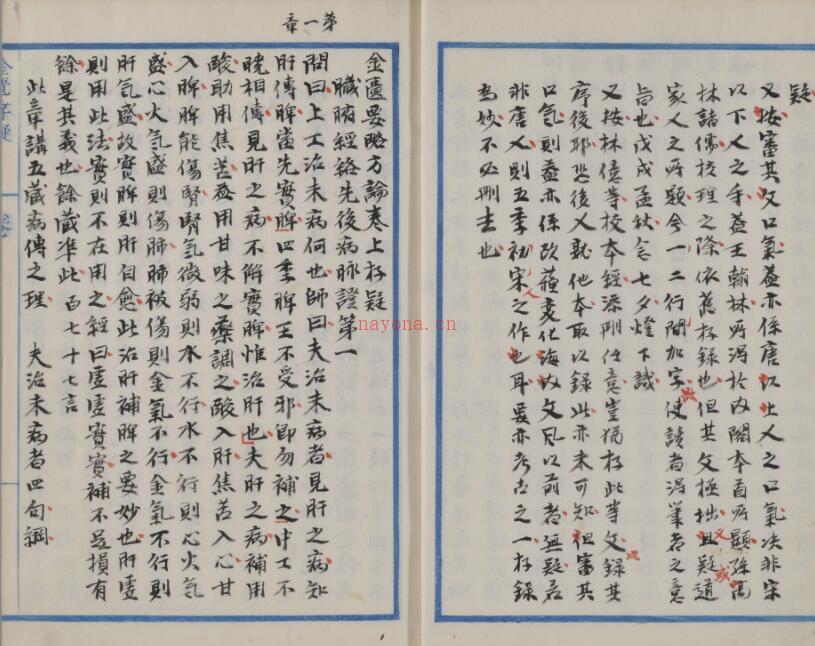 疑
又按審其文口氣蓋亦係唐以上人之口氣决非宋
以下人之手蓋王翰林所得於内閣本首所題孫高
林諸儒校理之際依舊存録也但其文極拙且疑道
家人之所題今一二行間加字使讀者得筆者之意
旨也戊戌孟秋念七夕燈下識
又按林億等校本經添刪任意豈猶存此等文録其
序後耶恐後人就他本取以録此亦未可知但審其
口氣則蓋亦係欧蘓変化海内文風以前者無疑若
非唐人則五季初宋人之作也耳要亦考古之一存録
為妙不必刪去也
第一章
金匱要略方論卷上存疑
臟腑經絡先後病脉證第一
問曰上工治未病何也師曰夫治未病者見肝之病知
肝傳脾當先實脾四季脾王不受邪即勿補之中工不
曉相傳見肝之病不解實脾惟治肝也夫肝之病補用
酸助用焦苦益用甘味之藥調之酸入肝焦苦入心甘
入脾脾能傷腎腎氣微弱則水不行水不行則心火気
盛心火気盛則傷肺肺被傷則金氣不行金氣不行則
肝気盛故實脾則肝自愈此治肝補脾之要妙也肝虚
則用此法實則不在用之經曰虚虚實實補不足損有
餘是其義也餘蔵準此 百七十七言
此章講五蔵病傳之理 夫治未病者四句綱
nayona.cn